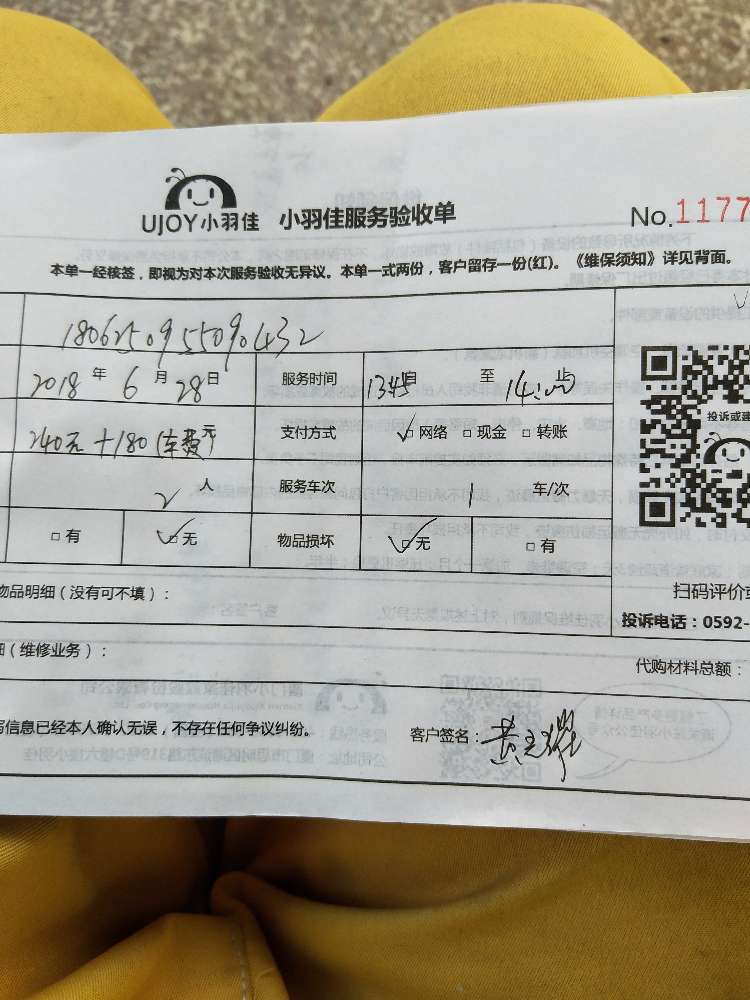 UJOY小羽佳 小羽佳服务验收单
No.1177
本单一经核签，即视为对本次服务验收无异议。本单一式两份，客户留存一份(红)。《维保须知》详见背面。
1806250955090432
2018 年 6 月 28 日 服务时间 1345 自 至 14:00 止
240元+180(车费)元 支付方式 网络 现金 转账
2 人 服务车次 1 车/次
有 无 物品损坏 无 有
投诉或建
物品明细（没有可不填）：
扫码评价或
投诉电话：0592-
细（维修业务）：
代购材料总额：
写信息已经本人确认无误，不存在任何争议纠纷。 客户签名：